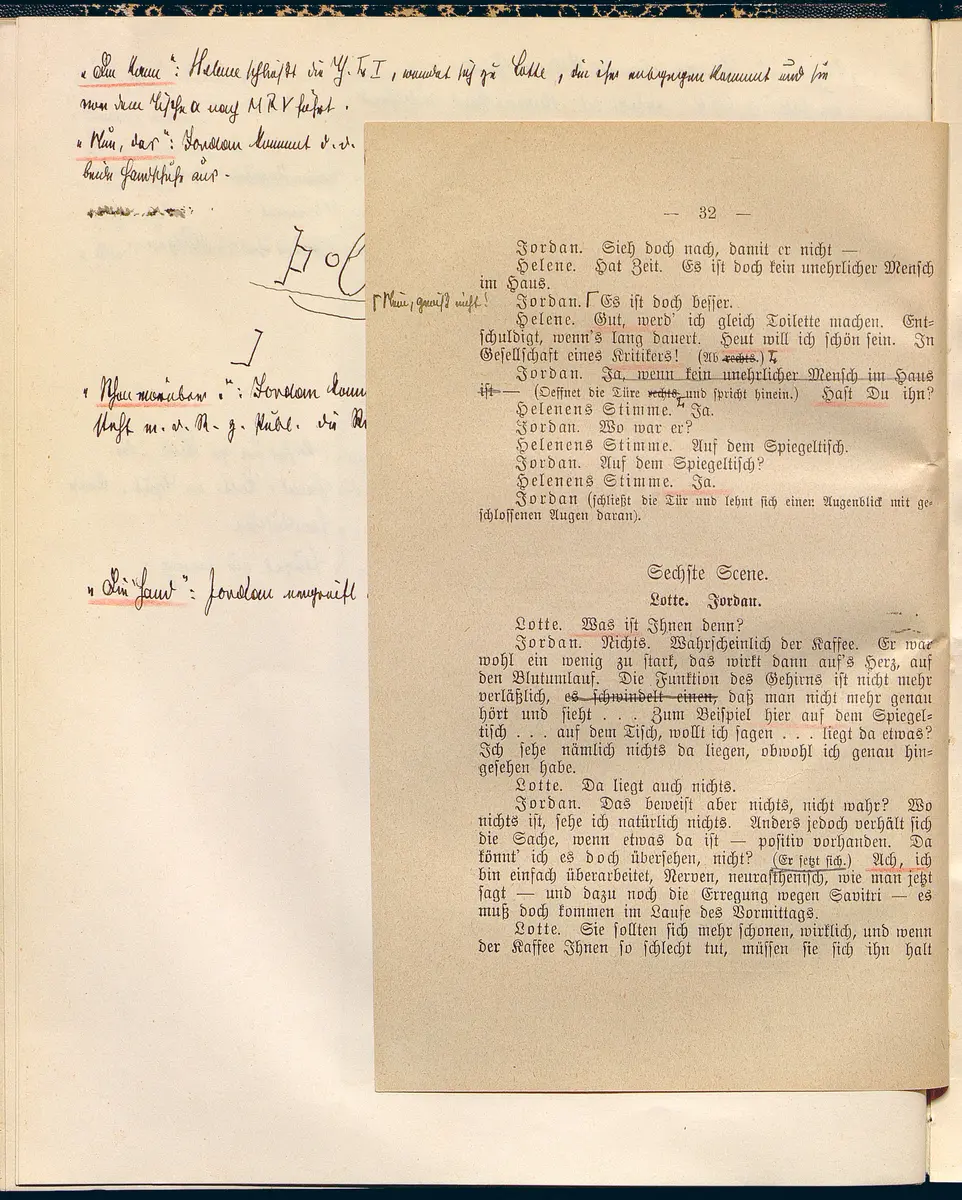 Helene schließt die T. Tr I, wendet sich zu Lotte, die ihr entgegen kommt und sie
von dem Tische a nach M R V führt.
„Nun, das": Jordan kommt v. d.
beide Handschuhe aus.
„Die Hand": Jordan
— 32 —
Jordan. Sieh doch nach, damit er nicht —
Helene. Hat Zeit. Es ist doch kein unehrlicher Mensch
im Haus.
Nein, gewiß nicht!
Jordan. Es ist doch besser.
Helene. Gut, werd' ich gleich Toilette machen. Ent-
schuldigt, wenn's lang dauert. Heut will ich schön sein. In
Gesellschaft eines Kritikers! (Ab rechts.)
Jordan. Ja, wenn kein unehrlicher Mensch im Haus
ist — (Oeffnet die Türe rechts und spricht hinein.) Hast Du ihn?
Helenens Stimme. Ja.
Jordan. Wo war er?
Helenens Stimme. Auf dem Spiegeltisch.
Jordan. Auf dem Spiegeltisch?
Helenens Stimme. Ja.
Jordan (schließt die Tür und lehnt sich einen Augenblick mit ge-
schlossenen Augen daran).
Sechste Scene.
Lotte. Jordan.
Lotte. Was ist Ihnen denn?
Jordan. Nichts. Wahrscheinlich der Kaffee. Er war
wohl ein wenig zu stark, das wirkt dann auf's Herz, auf
den Blutumlauf. Die Funktion des Gehirns ist nicht mehr
verläßlich, es schwindelt einen, daß man nicht mehr genau
hört und sieht . . . Zum Beispiel hier auf dem Spiegel-
tisch . . . auf dem Tisch, wollt ich sagen . . . liegt da etwas?
Ich sehe nämlich nichts da liegen, obwohl ich genau hin-
gesehen habe.
Lotte. Da liegt auch nichts.
Jordan. Das beweist aber nichts, nicht wahr? Wo
nichts ist, sehe ich natürlich nichts. Anders jedoch verhält sich
die Sache, wenn etwas da ist — positiv vorhanden. Da
könnt' ich es doch übersehen, nicht? (Er setzt sich.) Ach, ich
bin einfach überarbeitet, Nerven, neurasthenisch, wie man jetzt
sagt — und dazu noch die Erregung wegen Savitri — es
muß doch kommen im Laufe des Vormittags.
Lotte. Sie sollten sich mehr schonen, wirklich, und wenn
der Kaffee Ihnen so schlecht tut, müssen sie sich ihn halt